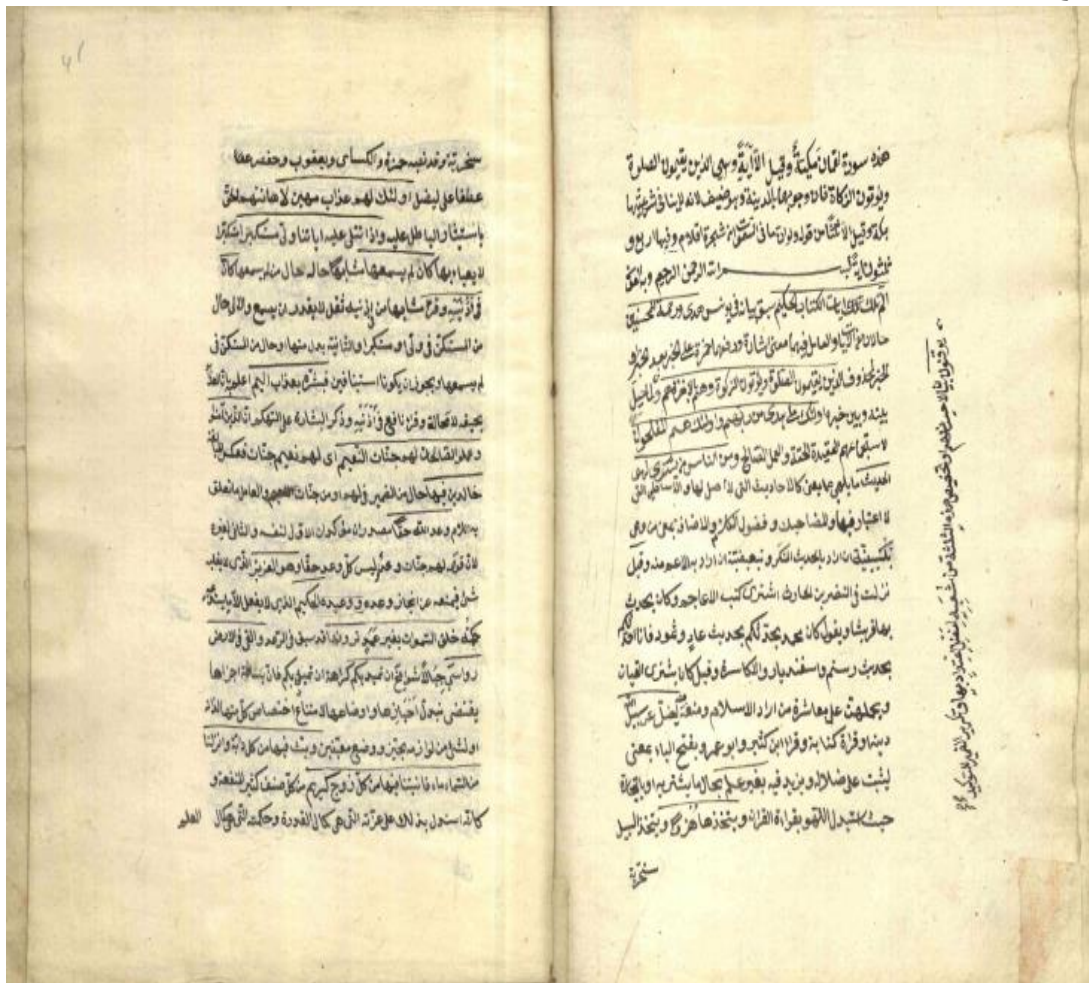 هذه سورة لقمان مكية وقيل الا آية وهي الذين يقيمون الصلوة
ويؤتون الزكاة فان وجوبهما بالمدينة وهو ضعيف لانه لا ينافى شرعيتهما
بمكة وقيل الا ثلثا من قوله ولو ان ما فى الارض من شجرة اقلام وفيها اربع و
ثلثون اية بسم الله الرحمن الرحيم وبه
الم تلك ايات الكتاب الحكيم سبق بيانه فى يونس هدى ورحمة للمحسنين
حالان من الآيات والعامل فيهما معنى الاشارة ورفعهما حمزة على الخبر بعد الخبر او
الخبر لمحذوف الذين يقيمون الصلوة ويؤتون الزكوة وهم بالاخرة هم
بينه وبين خبره اولئك على هدى من ربهم واولئك هم المفلحون
لاستجماعهم العقيدة الحقة والعمل الصالح ومن الناس من يشترى لهو
الحديث ما يلهى عما يعنى كالاحاديث التى لا اصل لها والاساطير التى
لا اعتبار فيها والمضاحيك وفضول الكلام والاضافة بمعنى من وهى
تبيينية ان اراد بالحديث المنكر وتبعيضية ان اراد به الاعم منه وقيل
نزلت فى النضر بن الحارث اشترى كتب الاعاجم وكان يحدث
بها قريشا ويقول ان كان محمد يحدثكم بحديث عاد وثمود فانا احدثكم
بحديث رستم واسفنديار والاكاسرة وقيل كان يشترى القيان
ويحملهن على معاشرة من اراد الاسلام ومنعه ليضل عن سبيل الله
دينه او قراة كتابه وقرا ابن كثير وابو عمرو بفتح الياء بمعنى
ليثبت على ضلاله ويزيد فيه بغير علم بحال ما يشتريه او بالتجارة
حيث استبدل اللهو بقراءة القران ويتخذها هزوا ويتخذ السبيل
سخرية
يوقنون بيان لاحسانهم او تخصيص لهذه الثلاثة من شعبه لفضل اعتداد بها وتكرير الضمير للتوكيد
سخرية وقد نصبه حمزة والكساى ويعقوب وحفص
عطفا على ليضل اولئك لهم عذاب مهين لاهانتهم الحق
باستيثار الباطل عليه واذا تتلى عليه اياتنا ولى مستكبرا متكبرا
لا يعبا بها كان لم يسمعها مشابها حاله حال من لم يسمعها كان
فى اذنيه وقرا مشابها من فى اذنيه ثقل لا يقدر ان يسمع والاولى حال
من المستكن فى ولى او مستكبرا والثانية بدل منها او حال من المستكن فى
لم يسمعها ويجوز ان يكونا استينافين فبشره بعذاب اليم اعلمه بان العذاب
يحيقه لا محالة وقرا نافع فى اذنيه وذكر البشارة على التهكم ان الذين آمنوا
وعملوا الصالحات لهم جنات النعيم اى لهم نعيم جنات فعكس للمبالغة
خالدين فيها حال من الضمير فى لهم او من جنات النعيم والعامل ما تعلق
به اللام وعد الله حقا مصدران مؤكدان الاول لنفسه والثانى لغيره
لان قوله لهم جنات وعد وليس كل وعد حقا وهو العزيز الذى لا يغلبه
شئ فيمنعه عن انجاز وعده ووعيده الحكيم الذى لا يفعل الا ما يستدعيه
حكمته خلق السموات بغير عمد ترونها قد سبق فى الرعد والقى فى الارض
رواسى جبالا شوامخ ان تميد بكم كراهة ان تميد بكم فان بساطة اجزاها
يقتضى تبدل احيازها واوضاعها لامتناع اختصاص كل منها لذاته
او لشئ من لوازمه بحيز ووضع معينين وبث فيها من كل دابة وانزلنا
من السماء ماء فانبتنا فيها من كل زوج كريم من كل صنف كثير المنفعة و
كانه استدل بذلك على عزته التى هى كمال القدرة وحكمته التى هى كمال
العلم